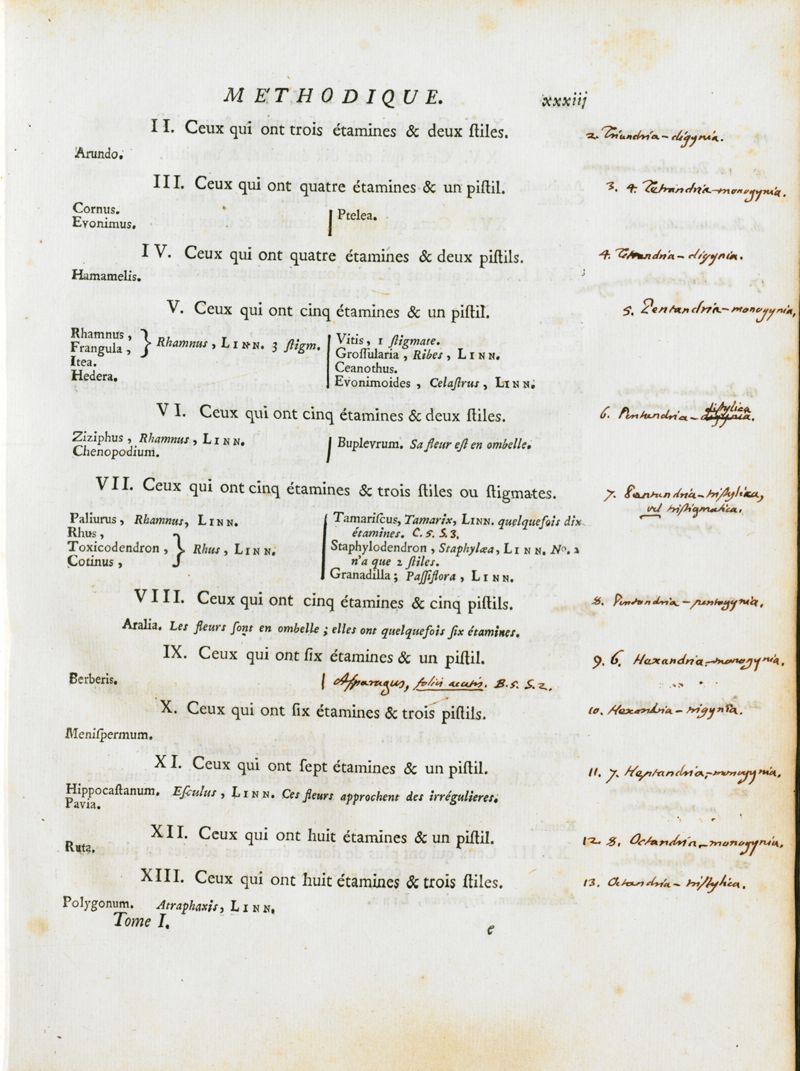 METHODIQUE. xxxiij
II. Ceux qui ont trois étamines & deux ſtiles. 2. Triandria – digynia.
Arundo.
III. Ceux qui ont quatre étamines & un piſtil. 3. 4. Tetrandria – monogynia.
Cornus.
Evonimus.
Ptelea.
IV. Ceux qui ont quatre étamines & deux piſtils. 4. Tetrandria – digynia.
Hamamelis.
V. Ceux qui ont cinq étamines & un piſtil. 5. Pentandria – monogynia,
Rhamnus,
Frangula, } Rhamnus, LINN. 3 ſtigm.
Itea.
Hedera.
Vitis, 1 ſtigmate.
Groſſularia, Ribes, LINN.
Ceanothus.
Evonimoides, Celaſtrus, LINN.
VI. Ceux qui ont cinq étamines & deux ſtiles. 6. Pentandria – diſtylica
Ziziphus, Rhamnus, LINN.
Chenopodium.
Buplevrum. Sa fleur eſt en ombelle.
VII. Ceux qui ont cinq étamines & trois ſtiles ou ſtigmates. 7. Pentandria – triſtylica,
vel triſtigmatica.
Paliurus, Rhamnus, LINN.
Rhus,
Toxicodendron, } Rhus, LINN.
Cotinus,
Tamariſcus, Tamarix, LINN. quelquefois dix
étamines. C. 5. S. 3.
Staphylodendron, Staphylæa, LINN. N°. 2
n'a que 2 ſtiles.
Granadilla; Paſſiflora, LINN.
VIII. Ceux qui ont cinq étamines & cinq piſtils. 8. Pentandria – pentagynia.
Aralia. Les fleurs ſont en ombelle; elles ont quelquefois ſix étamines.
IX. Ceux qui ont ſix étamines & un piſtil. 9. 6. Hexandria – monogynia.
Berberis.
Aſparagus, foliis acutis. B. 5. S. 2.
X. Ceux qui ont ſix étamines & trois piſtils. 10. Hexandria – trigynia.
Meniſpermum.
XI. Ceux qui ont ſept étamines & un piſtil. 11. 7. Heptandria – monogynia.
Hippocaſtanum. Eſculus, LINN. Ces fleurs approchent des irrégulieres.
Pavia.
XII. Ceux qui ont huit étamines & un piſtil. 12. 8. Octandria – monogynia.
Ruta.
XIII. Ceux qui ont huit étamines & trois ſtiles. 13. Octandria – triſtylica.
Polygonum. Atraphaxis, LINN.
Tome I. e